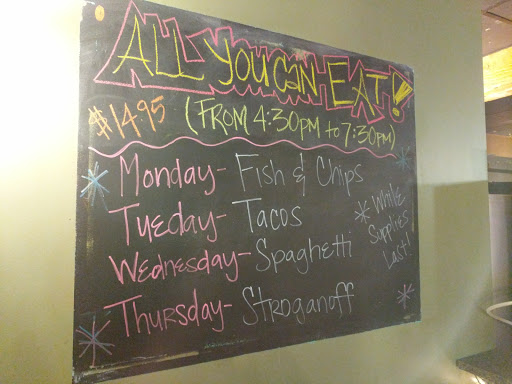 ALL YOU Can EAT!
$14.95
(FROM 4:30pm to 7:30pm)
Monday- Fish & Chips
Tueday- Tacos
Wednesday- Spaghetti
Thursday- Stroganoff
* While
Supplies
Last!